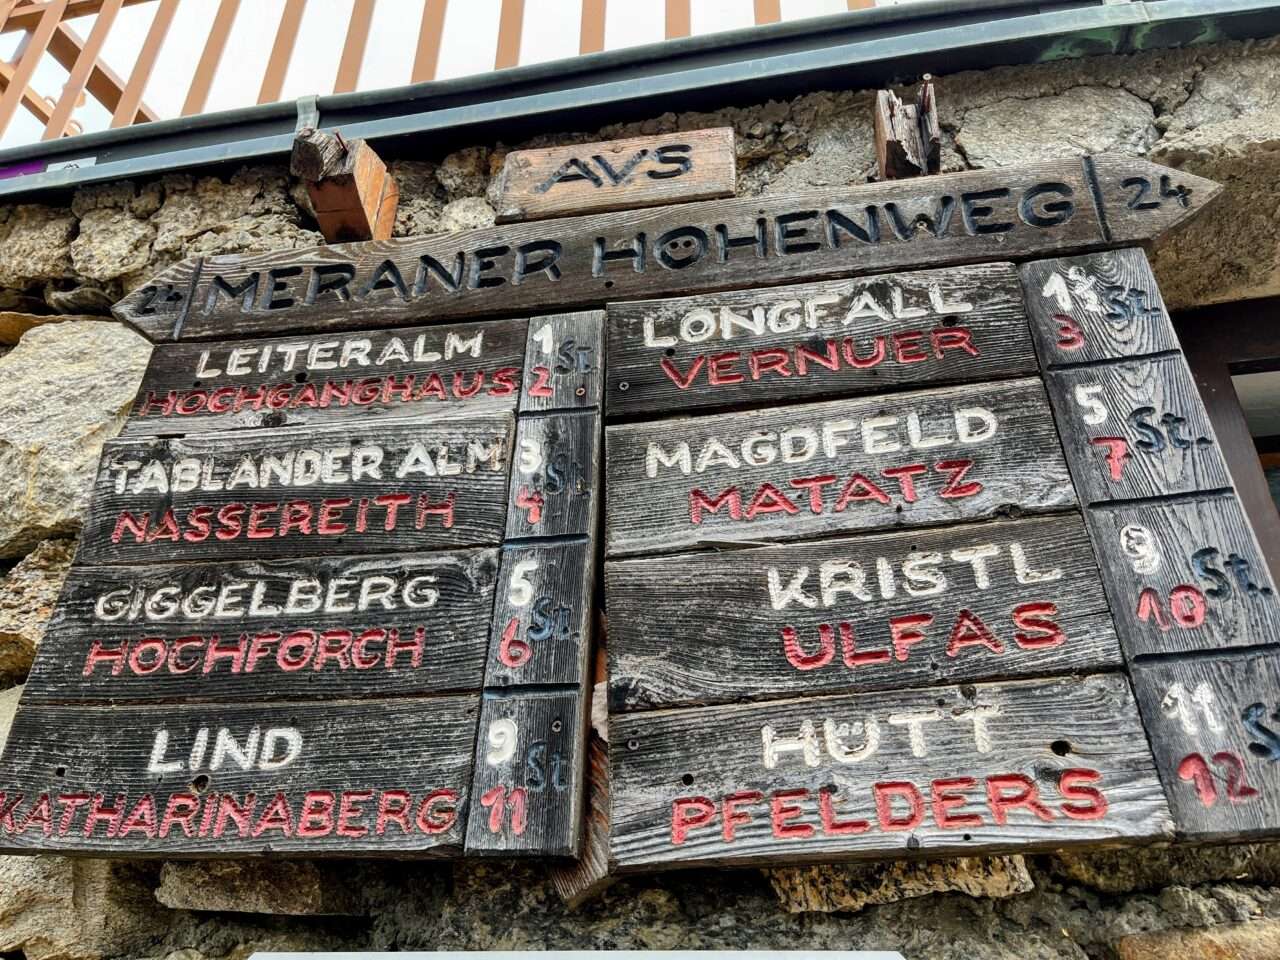 AVS
24 MERANER HÖHENWEG 24
LEITERALM 1 St.
HOCHGANGHAUS 2
TABLANDER ALM 3 St.
NASSEREITH 4
GIGGELBERG 5 St.
HOCHFORCH 6
LIND 9 St
KATHARINABERG 11
LONGFALL St.
VERNUER 3
MAGDFELD 5 St.
MATATZ 7
KRISTL 9 St.
ULFAS 10
HÜTT 11 St
PFELDERS 12